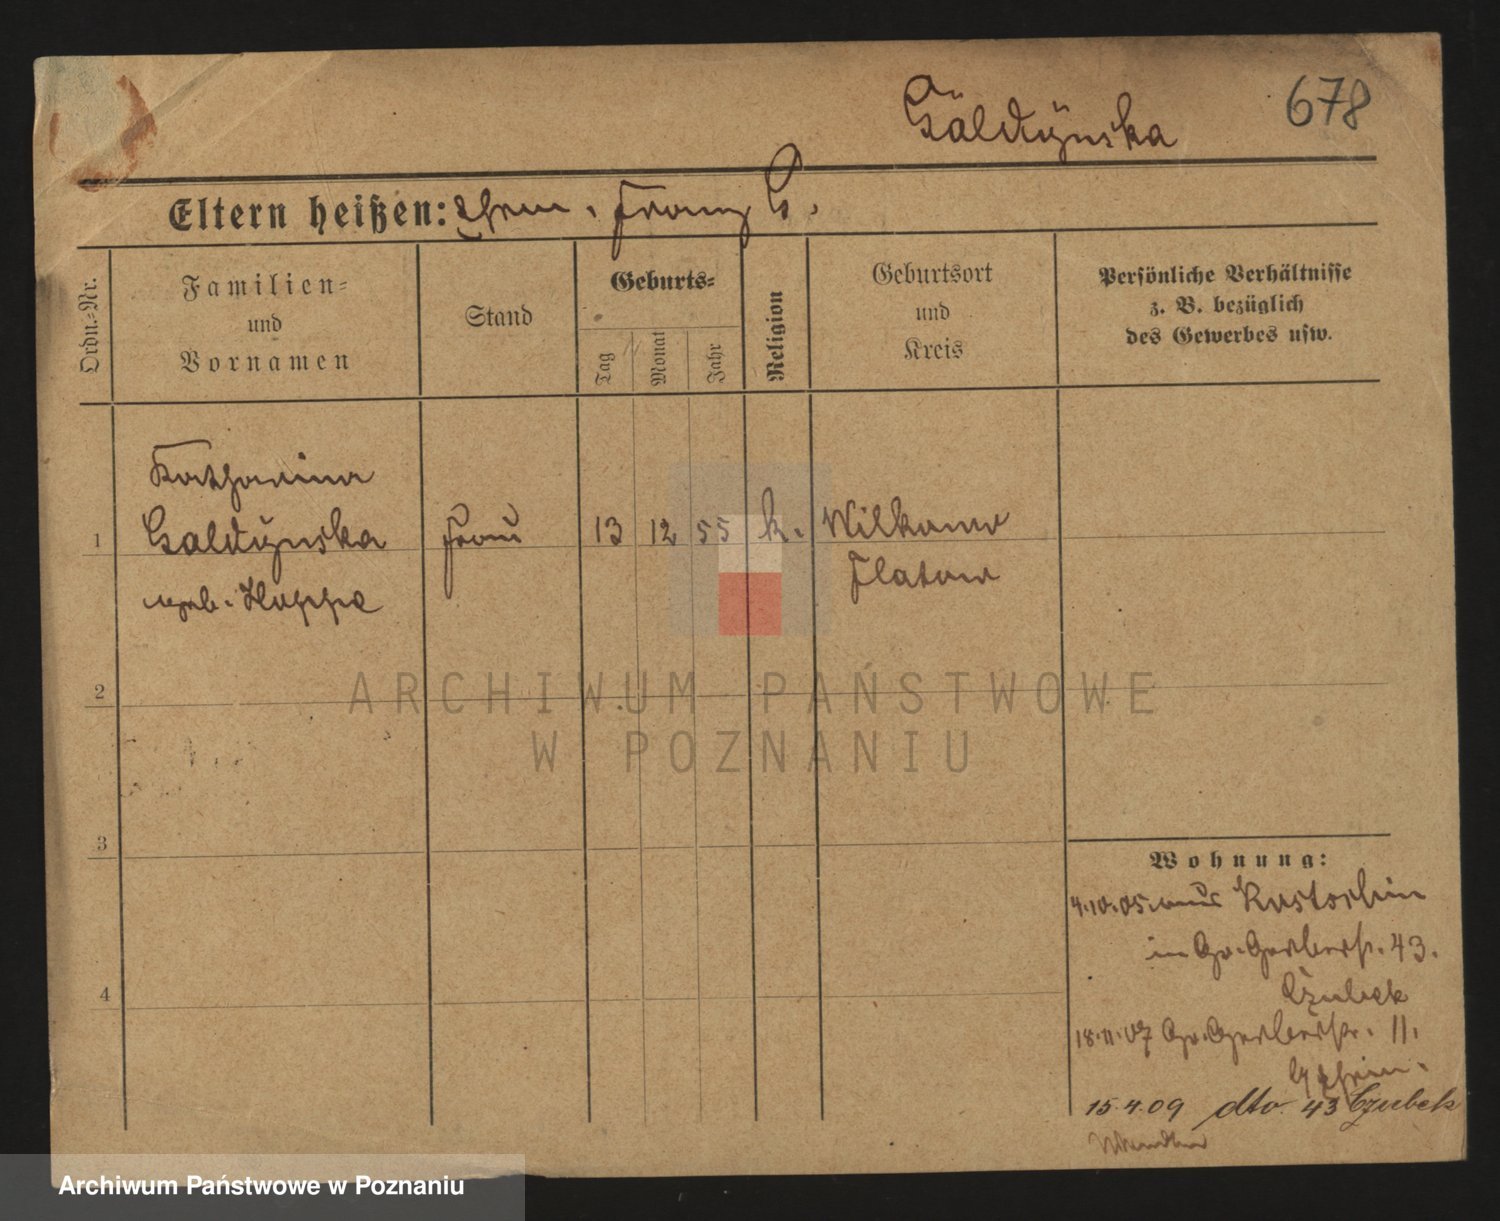 Galdyńska
678
Eltern heißen: Ehem. Franz G.
Ordn.-Nr.
Familien-
und
Vornamen
Stand
Geburts-
Tag
Monat
Jahr
Religion
Geburtsort
und
Kreis
Persönliche Verhältnisse
z. B. bezüglich
des Gewerbes usw.
Katharina
1 Galdyńska Frau 13 12 55 k. Wilkowo
geb. Hoppe Flatow
2
3
4
Wohnung:
4.10.05. aus
in Gr. Gerberstr. 43.
Czubek
18.11.07 Gr. Gerberstr. 11.
15.4.09 dto. 43 Czubek
ARCHIWUM PAŃSTWOWE
W POZNANIU
Archiwum Państwowe w Poznaniu